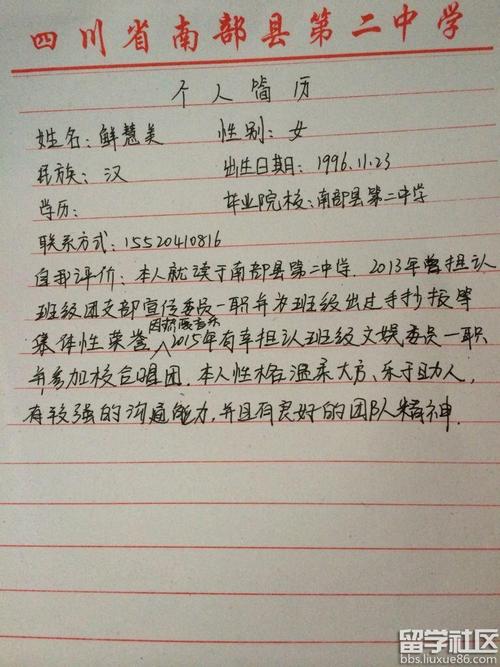 四川省南部县第二中学
个人简历
姓名：鲜慧美 性别：女
民族：汉 出生日期：1996.11.23
学历： 毕业院校：南部县第二中学
联系方式：15520410816
自我评价：本人就读于南部县第二中学.2013年曾担认
班级团支部宣传委员一职并为班级出过手抄报等
集体性荣誉因热爱音乐2015年有幸担认班级文娱委员一职
并参加校合唱团.本人性格温柔大方、乐于助人,
有较强的沟通能力,并且有良好的团队精神.
留学社区
bbs.liuxue86.com